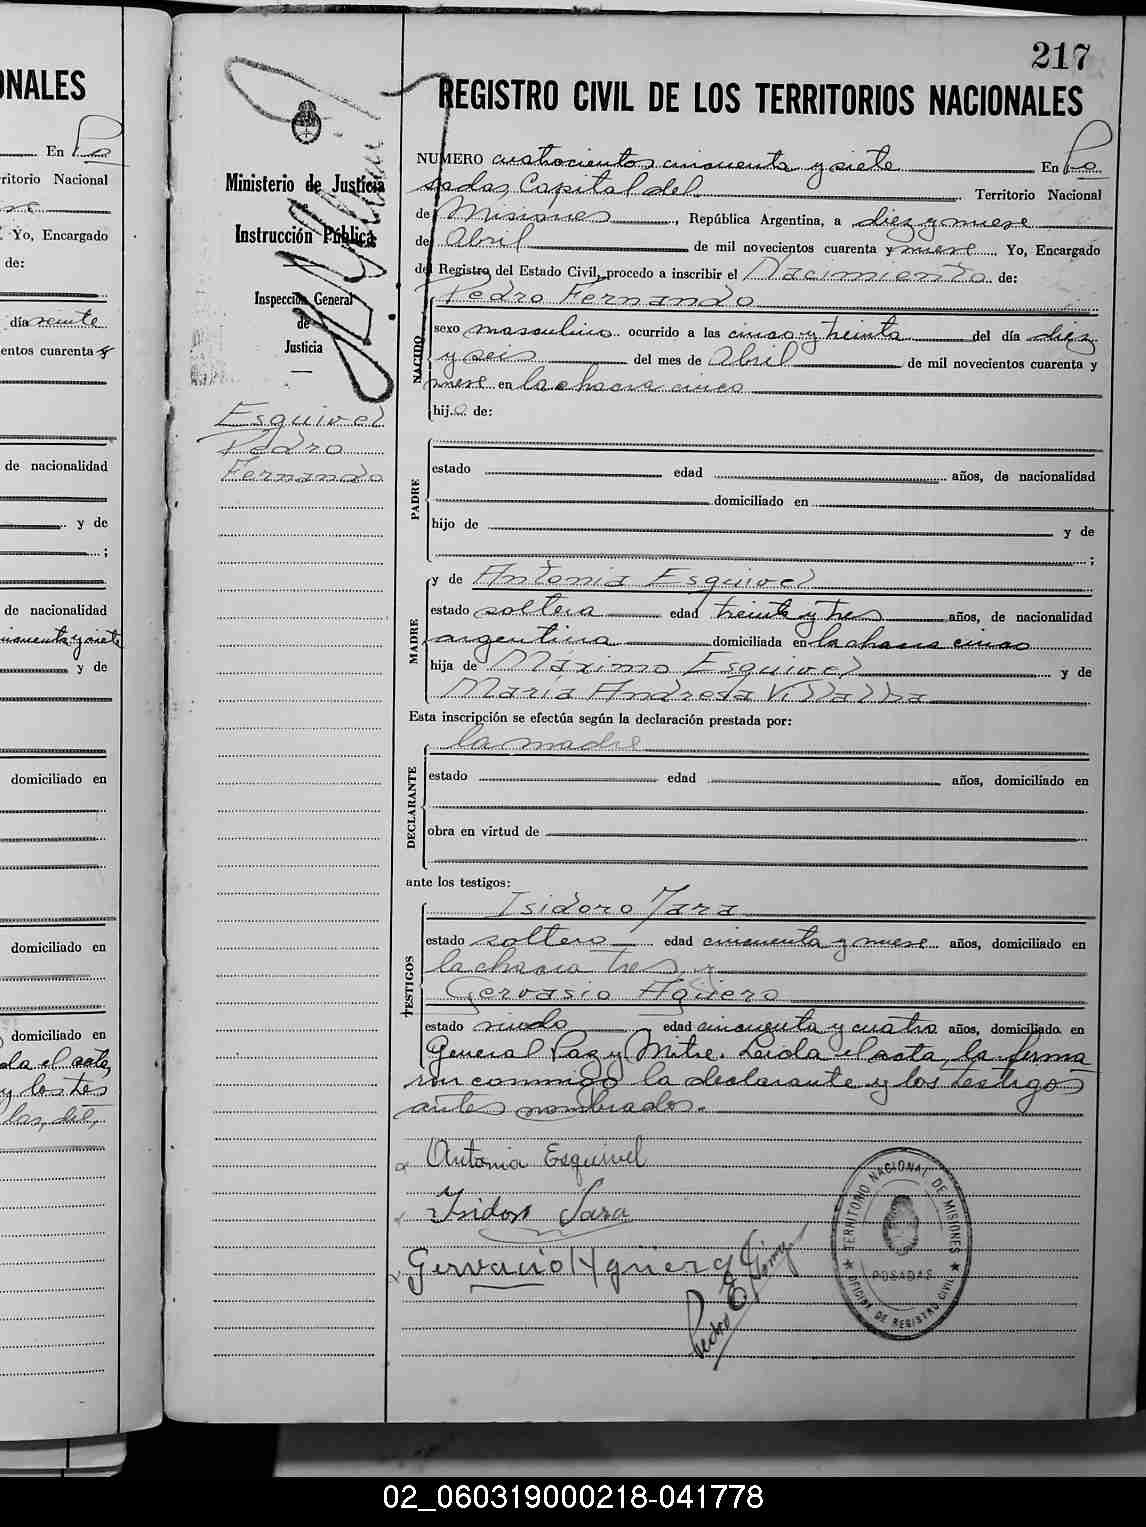 ONALES
En Po
ritorio Nacional
Yo, Encargado
de:
día veinte
entos cuarenta y
de nacionalidad
y de
;
de nacionalidad
y de
domiciliado en
domiciliado en
domiciliado en
da el acta,
y los tes
217
REGISTRO CIVIL DE LOS TERRITORIOS NACIONALES
Ministerio de Justicia
e
Instrucción Pública
Inspección General
de
Justicia
Esquivel
Pedro
Fernando
NUMERO cuatrocientos cincuenta y siete En Po
sadas, Capital del Territorio Nacional
de Misiones, República Argentina, a diez y nueve
de Abril de mil novecientos cuarenta y nueve. Yo, Encargado
del Registro del Estado Civil, procedo a inscribir el Nacimiento de:
NACIDO
Pedro Fernando
sexo masculino ocurrido a las cinco y treinta del día diez
y seis del mes de Abril de mil novecientos cuarenta y
nueve en la chacra cinco
hijo de:
PADRE
estado edad años, de nacionalidad
domiciliado en
hijo de y de
;
MADRE
y de Antonia Esquivel
estado soltera edad treinta y tres años, de nacionalidad
argentina domiciliada en la chacra cinco
hija de Máximo Esquivel y de
María Andresa Villalba
Esta inscripción se efectúa según la declaración prestada por:
DECLARANTE
la madre
estado edad años, domiciliado en
obra en virtud de
ante los testigos:
TESTIGOS
Isidoro Jara
estado soltero edad cincuenta y nueve años, domiciliado en
la chacra tres y
Gervasio Agüero
estado viudo edad cincuenta y cuatro años, domiciliado en
General Paz y Mitre. Leida el acta, la firma
ron conmigo la declarante y los testigos
antes nombrados.
Antonia Esquivel
Isidoro Jara
Gervacio Agüero
Pedro E. Gomez
TERRITORIO NACIONAL DE MISIONES
POSADAS
OFICINA DE REGISTRO CIVIL
02_060319000218-041778